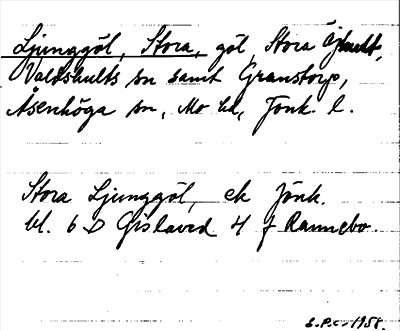 Ljunggöl, Stora, göl, Stora Öjhult,
Valdshults sn samt Granstorp,
Åsenhöga sn, Mo hd, Jönk. l.
Stora Ljunggöl, ek Jönk.
bl. 6 D Gislaved 4 f Rannebo.
S.P.c. 1958.